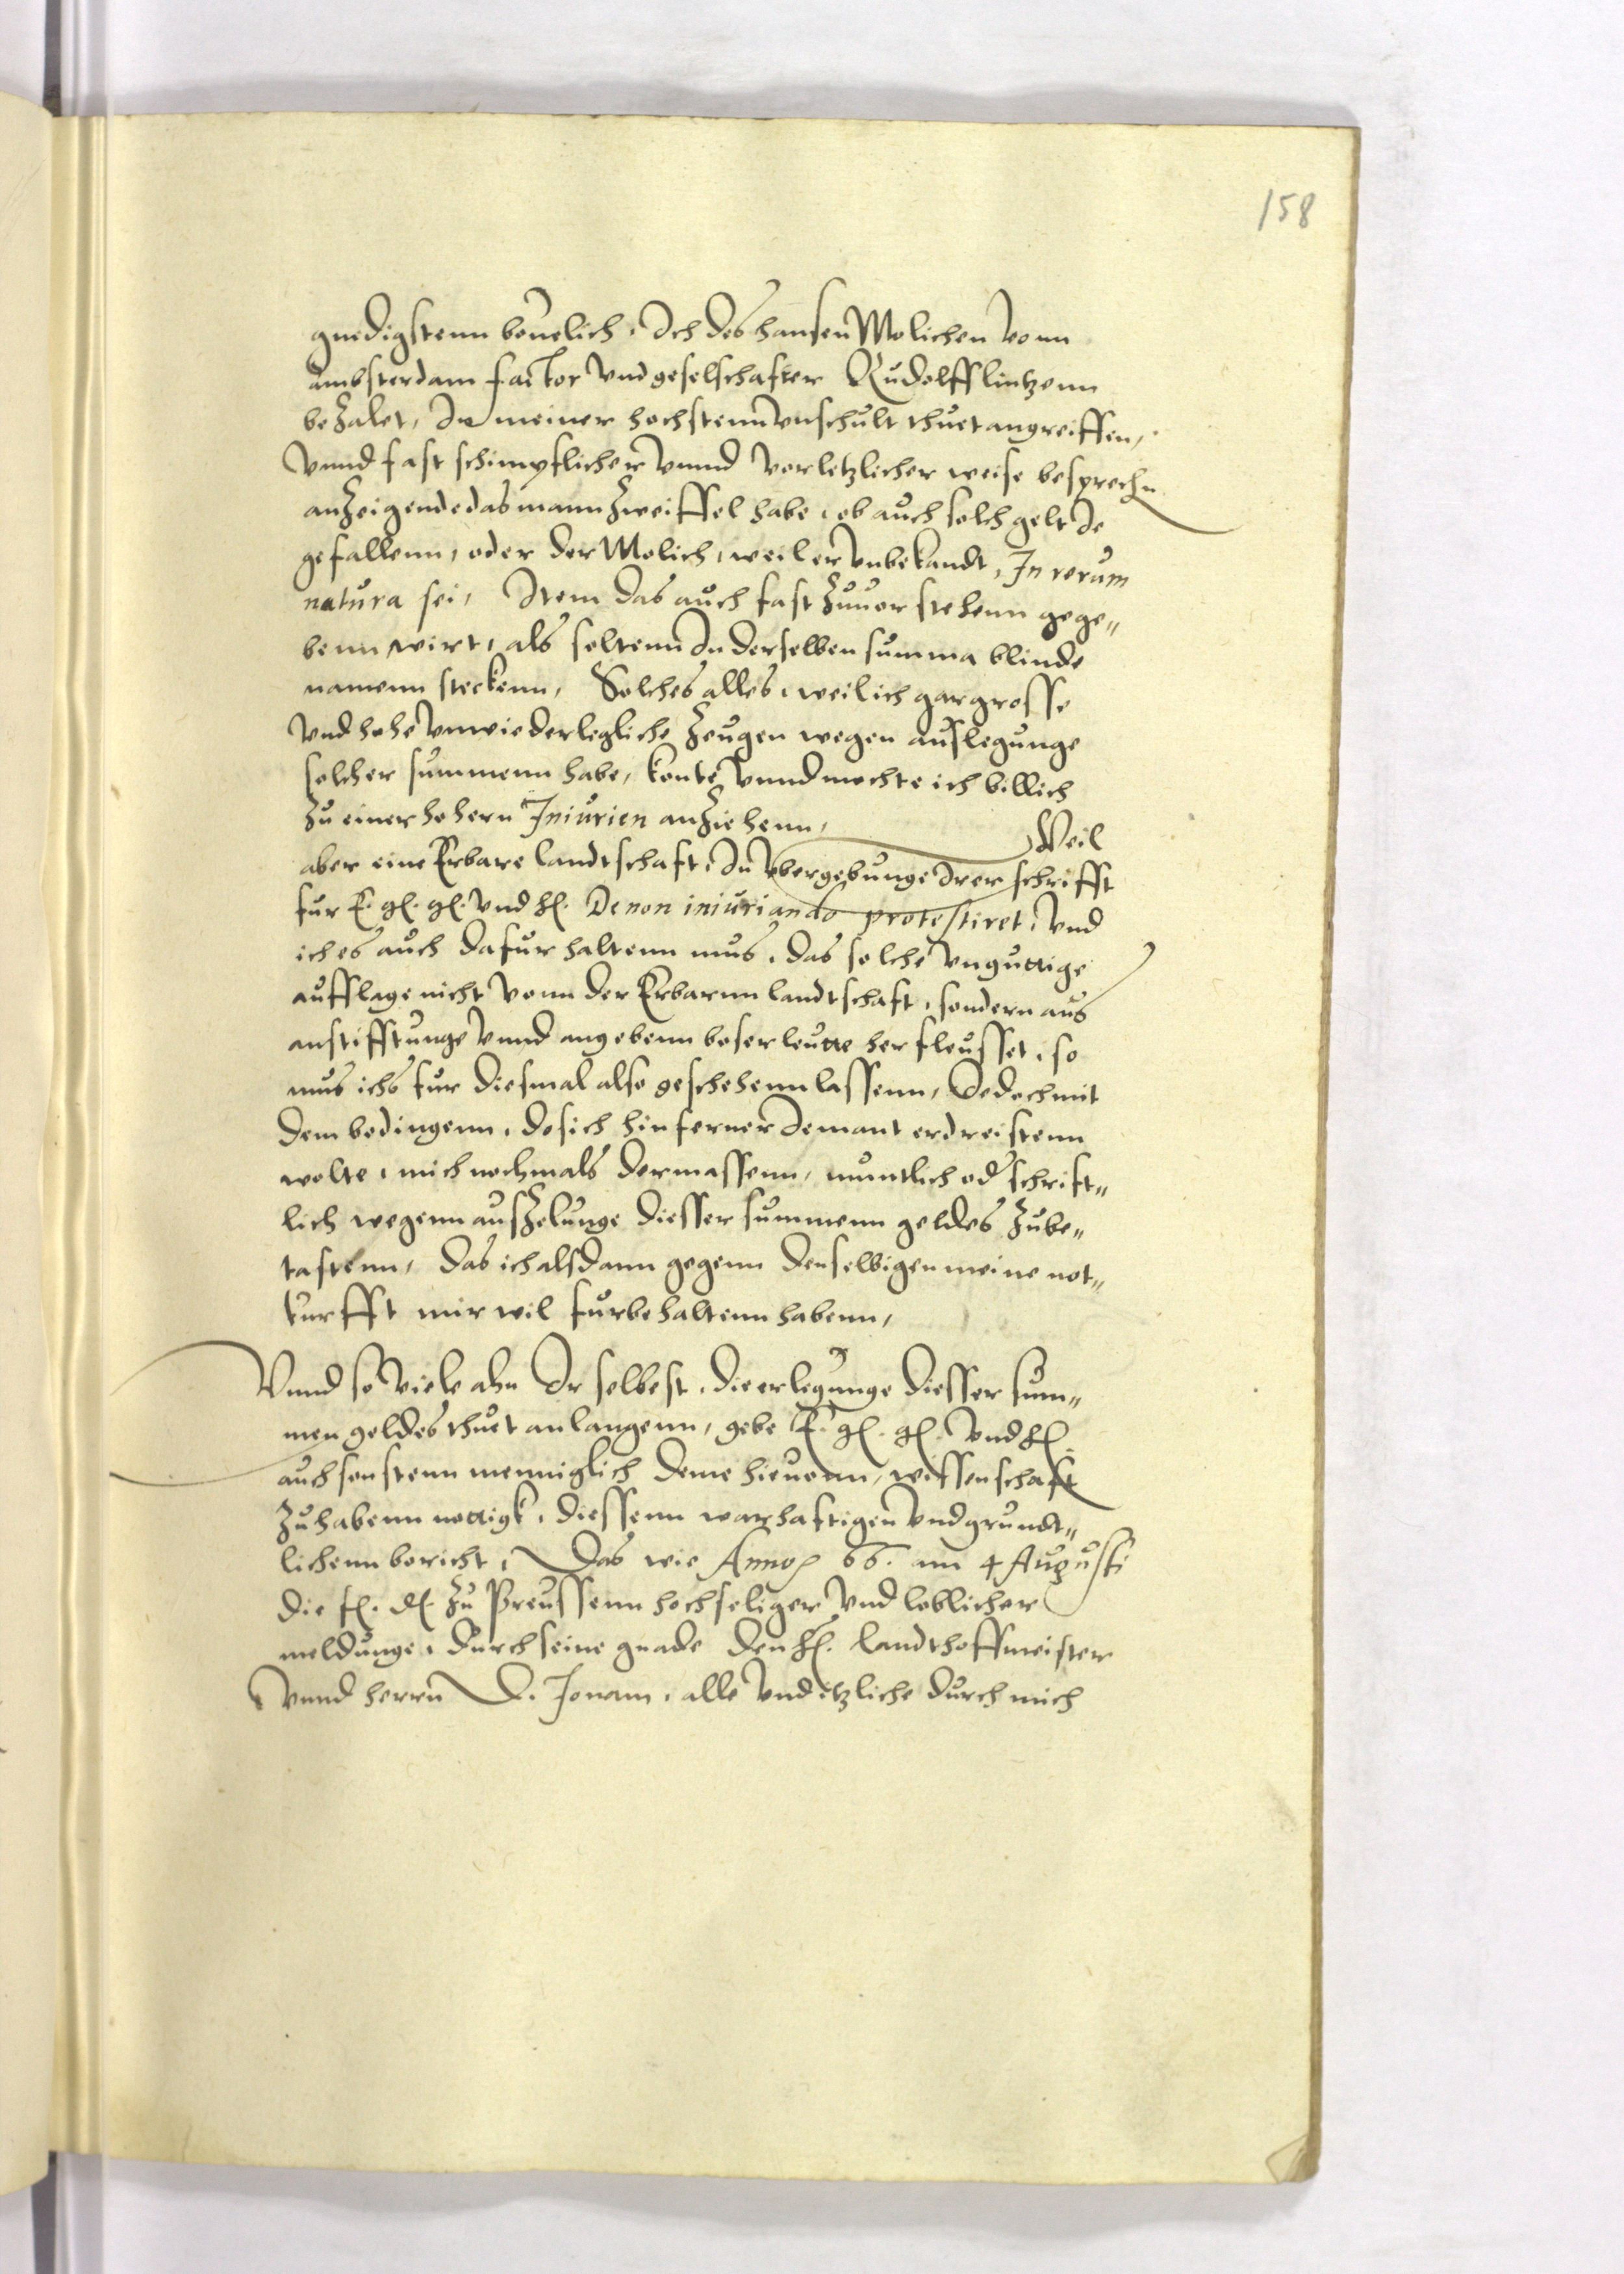 158
gnedigstenn beuelich, Ich des hansen Molichen vonn
ambsterdam factor vnd geselschafter Rudolff lintzenn
bezalet, In meiner hochstenn vnschult thuet angreiffen,
vnnd fast schimpflicher vnnd vorletzlicher weise besprechn
anzeigende das mann zweiffel habe, ob auch solch gelt Je
gefallenn, oder der Molich, weil er vnbekandt, In rerum
natura sei, Item das auch fast zuuorstehenn gege„
benn wirt, als soltenn In derselben summa blinde
namenn steckenn, Solches alles, weil ich gar grosse
vnd hohe vnwiederlegliche zeugen wegen auslegunge
solcher summenn habe, konte vnnd mochte ich billich
zu einer hohern Iniurien anziehenn, Weil
aber eine Erbare landtschaft, In vbergebunge Irer schrifft
fur E. gl. gl. vnd hl. De non iniuriando protestiret, vnd
ich es auch dafur haltenn mus, das solche vnguttige
aufflage nicht vonn der Erbarnn landtschaft, sondern aus
anstifftunge vnnd angebenn boser leutte herfleusset, so
mus ichs fur diesmal also geschehenn lassenn, Jedoch mit
dem bedingenn, do sich hinferner Jemant erdreistenn
wolte, mich nochmals dermassenn, muntlich od schrift„
lich wegenn auszelunge diesser summenn geldes zube„
tastenn, das ich alsdann gegenn denselbigen meine not„
turfft mir wil furbehaltenn habenn,
Vnnd so viele ahn Ir selbest, die erlegunge diesser sum„
men geldes thuet anlangenn, gebe E. gl. gl. vnd hl.
auch sonstenn menniglich deme hieuonn, wissenschaft
zuhabenn nottigk, diessenn warhaftigen vnd grundt„
lichenn bericht, Das wie Anno 66. am 4 Augusti
die fl. dl. zu Preussenn hochseliger vnd loblicher
meldunge, durch seine gnade den hl. landthoffmeister
vnnd herrn D. Jonam, alle vnd itzliche durch mich